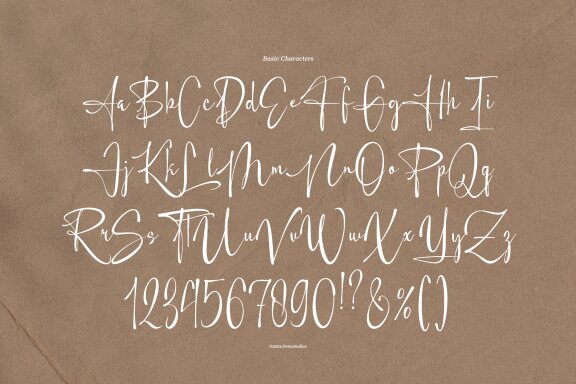 Basic Characters
Aa Bb Cc Dd Ee Ff Gg Hh Ii
Jj Kk Ll Mm Nn Oo Pp Qq
Rr Ss Tt Uu Vv Ww Xx Yy Zz
1234567890!?&%()